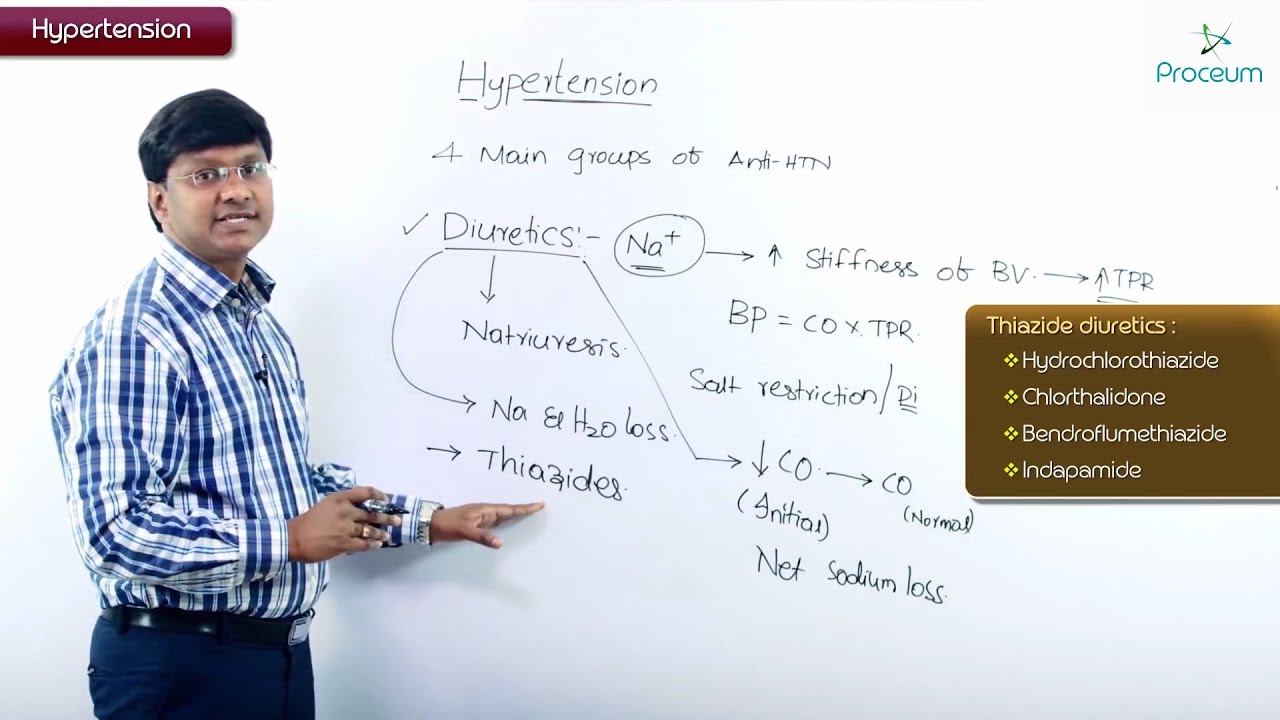 Hypertension
Proceum
Hypertension
4 Main groups of Anti-HTN
✓ Diuretics:- Na+ → ↑ Stiffness of BV. → ↑ TPR
BP = CO x TPR.
Natriuresis.
Salt restriction/Di
Na & H2O loss.
→ Thiazides.
↓ CO. → CO
(Initial)
(Normal)
Net Sodium loss.
Thiazide diuretics :
❖ Hydrochlorothiazide
❖ Chlorthalidone
❖ Bendroflumethiazide
❖ Indapamide